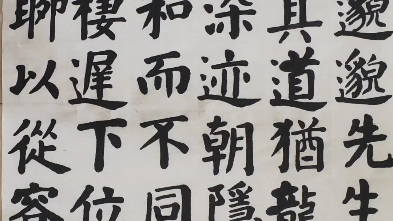 邈邈先生
其道猶龍
深迹朝隱
和而不同
棲遲下位
聊以從容